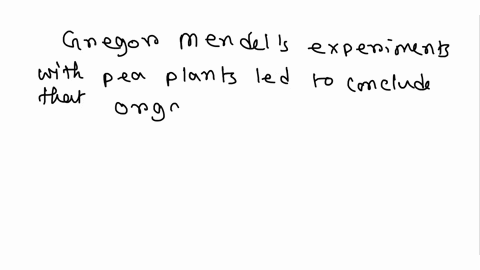 Gregor Mendel's experiments
with pea plants led to conclude
that orga